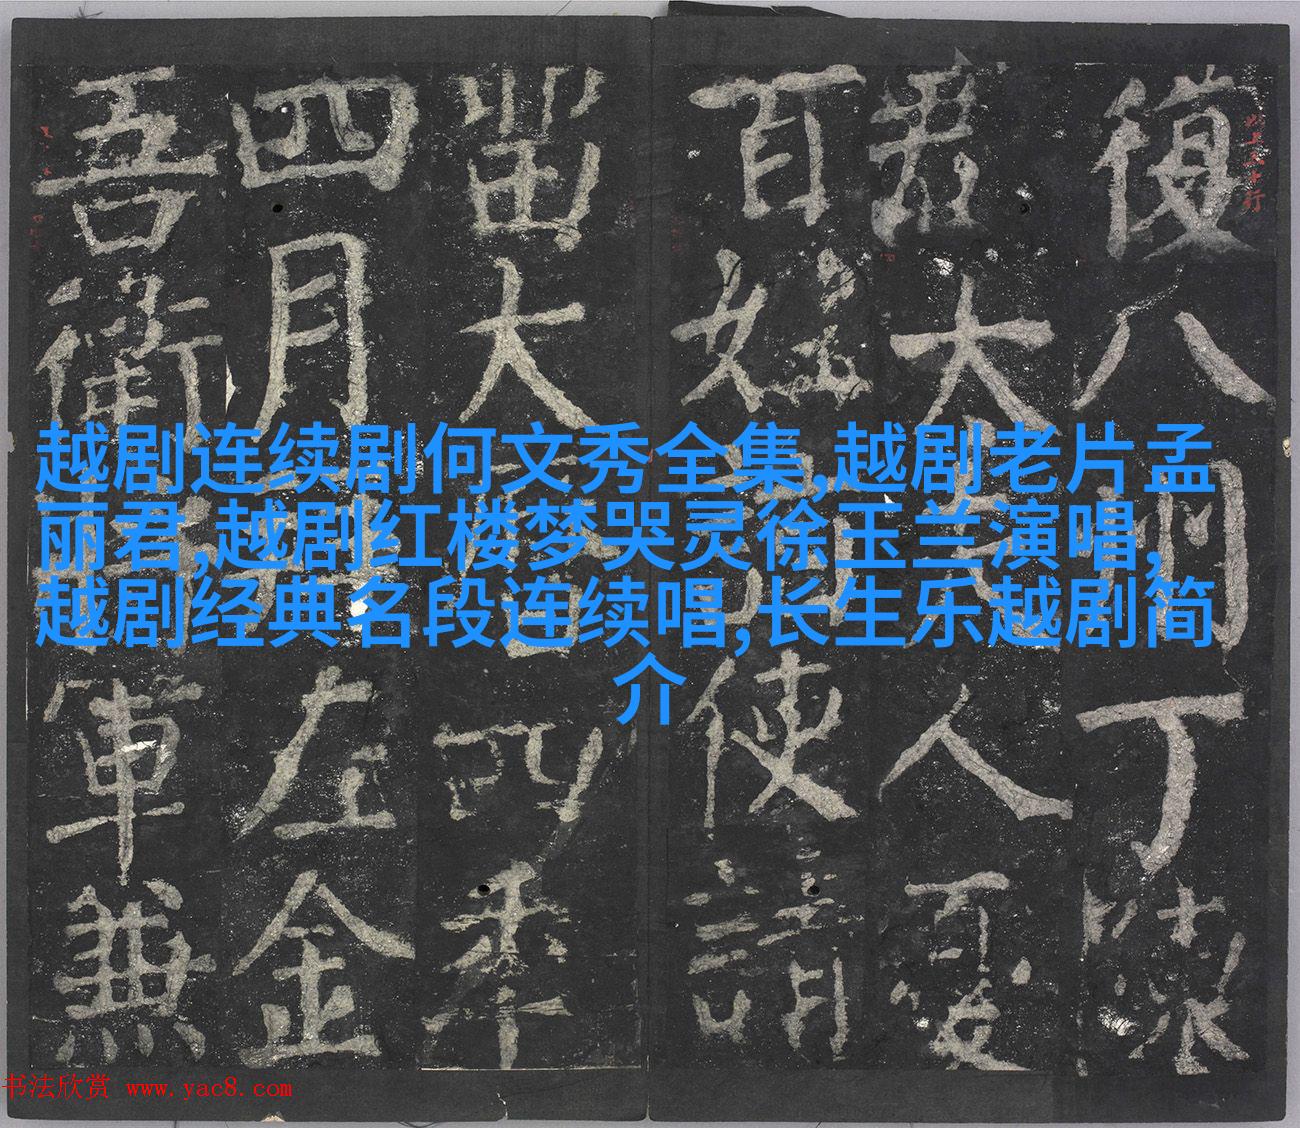 越剧连续剧何文秀全集,越剧老片孟
丽君,越剧红楼梦哭灵徐玉兰演唱,
越剧经典名段连续唱,长生乐越剧简
介
復八丁
君大人
百姓使請
留大四年
四月左金
吾衛軍兼
书法欣赏 www.yac8.com